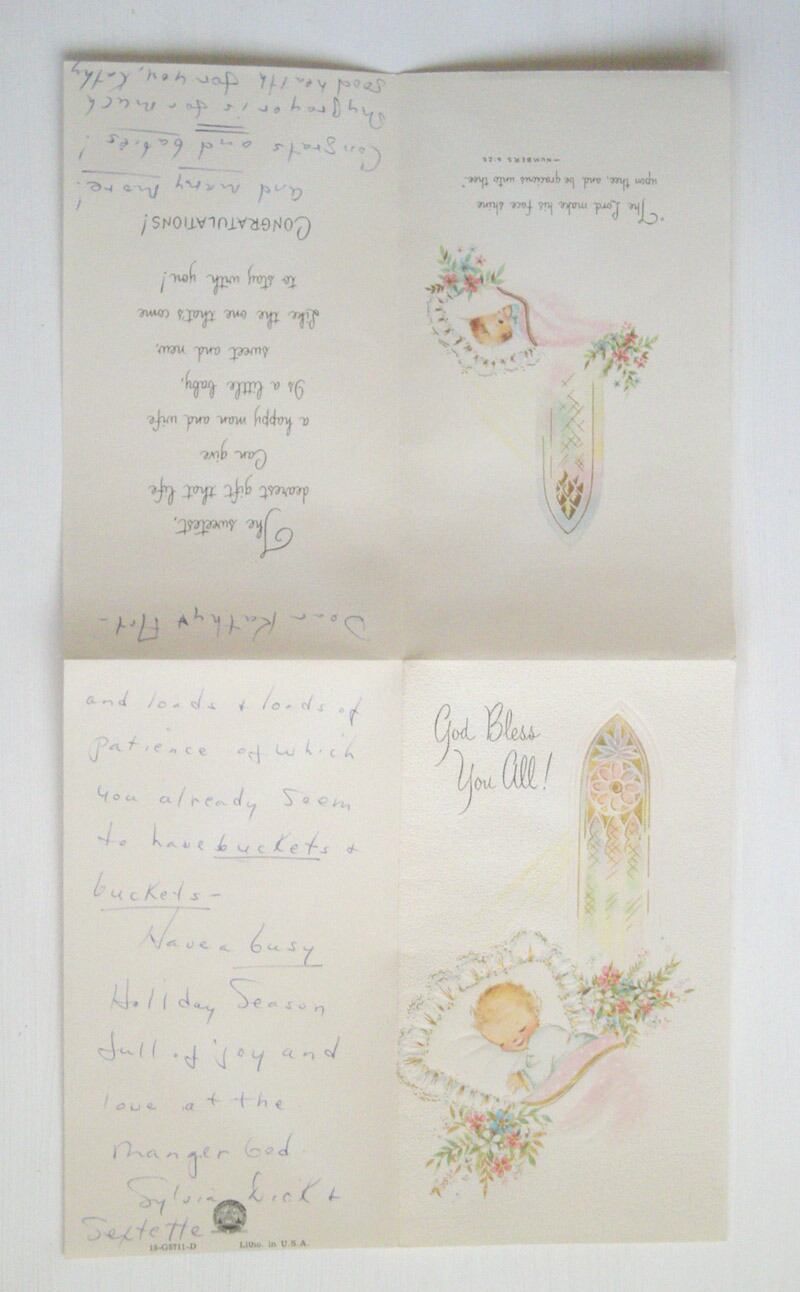 God Bless
You All!
"The Lord make his face shine
upon thee, and be gracious unto thee."
—NUMBERS 6:25
Dear Kathy & Art -
The sweetest,
dearest gift that life
Can give
a happy man and wife
Is a little baby,
sweet and new,
Like the one that's come
to stay with you!
CONGRATULATIONS!
and many more!
Congrats and babies!
My prayer is for much
good health for you, Kathy
and loads & loads of
patience of which
you already seem
to have buckets &
buckets -
Have a busy
Holiday Season
full of joy and
love at the
manger bed.
Sylvia, Dick &
Sextette
15-G5711-D Litho. in U.S.A.